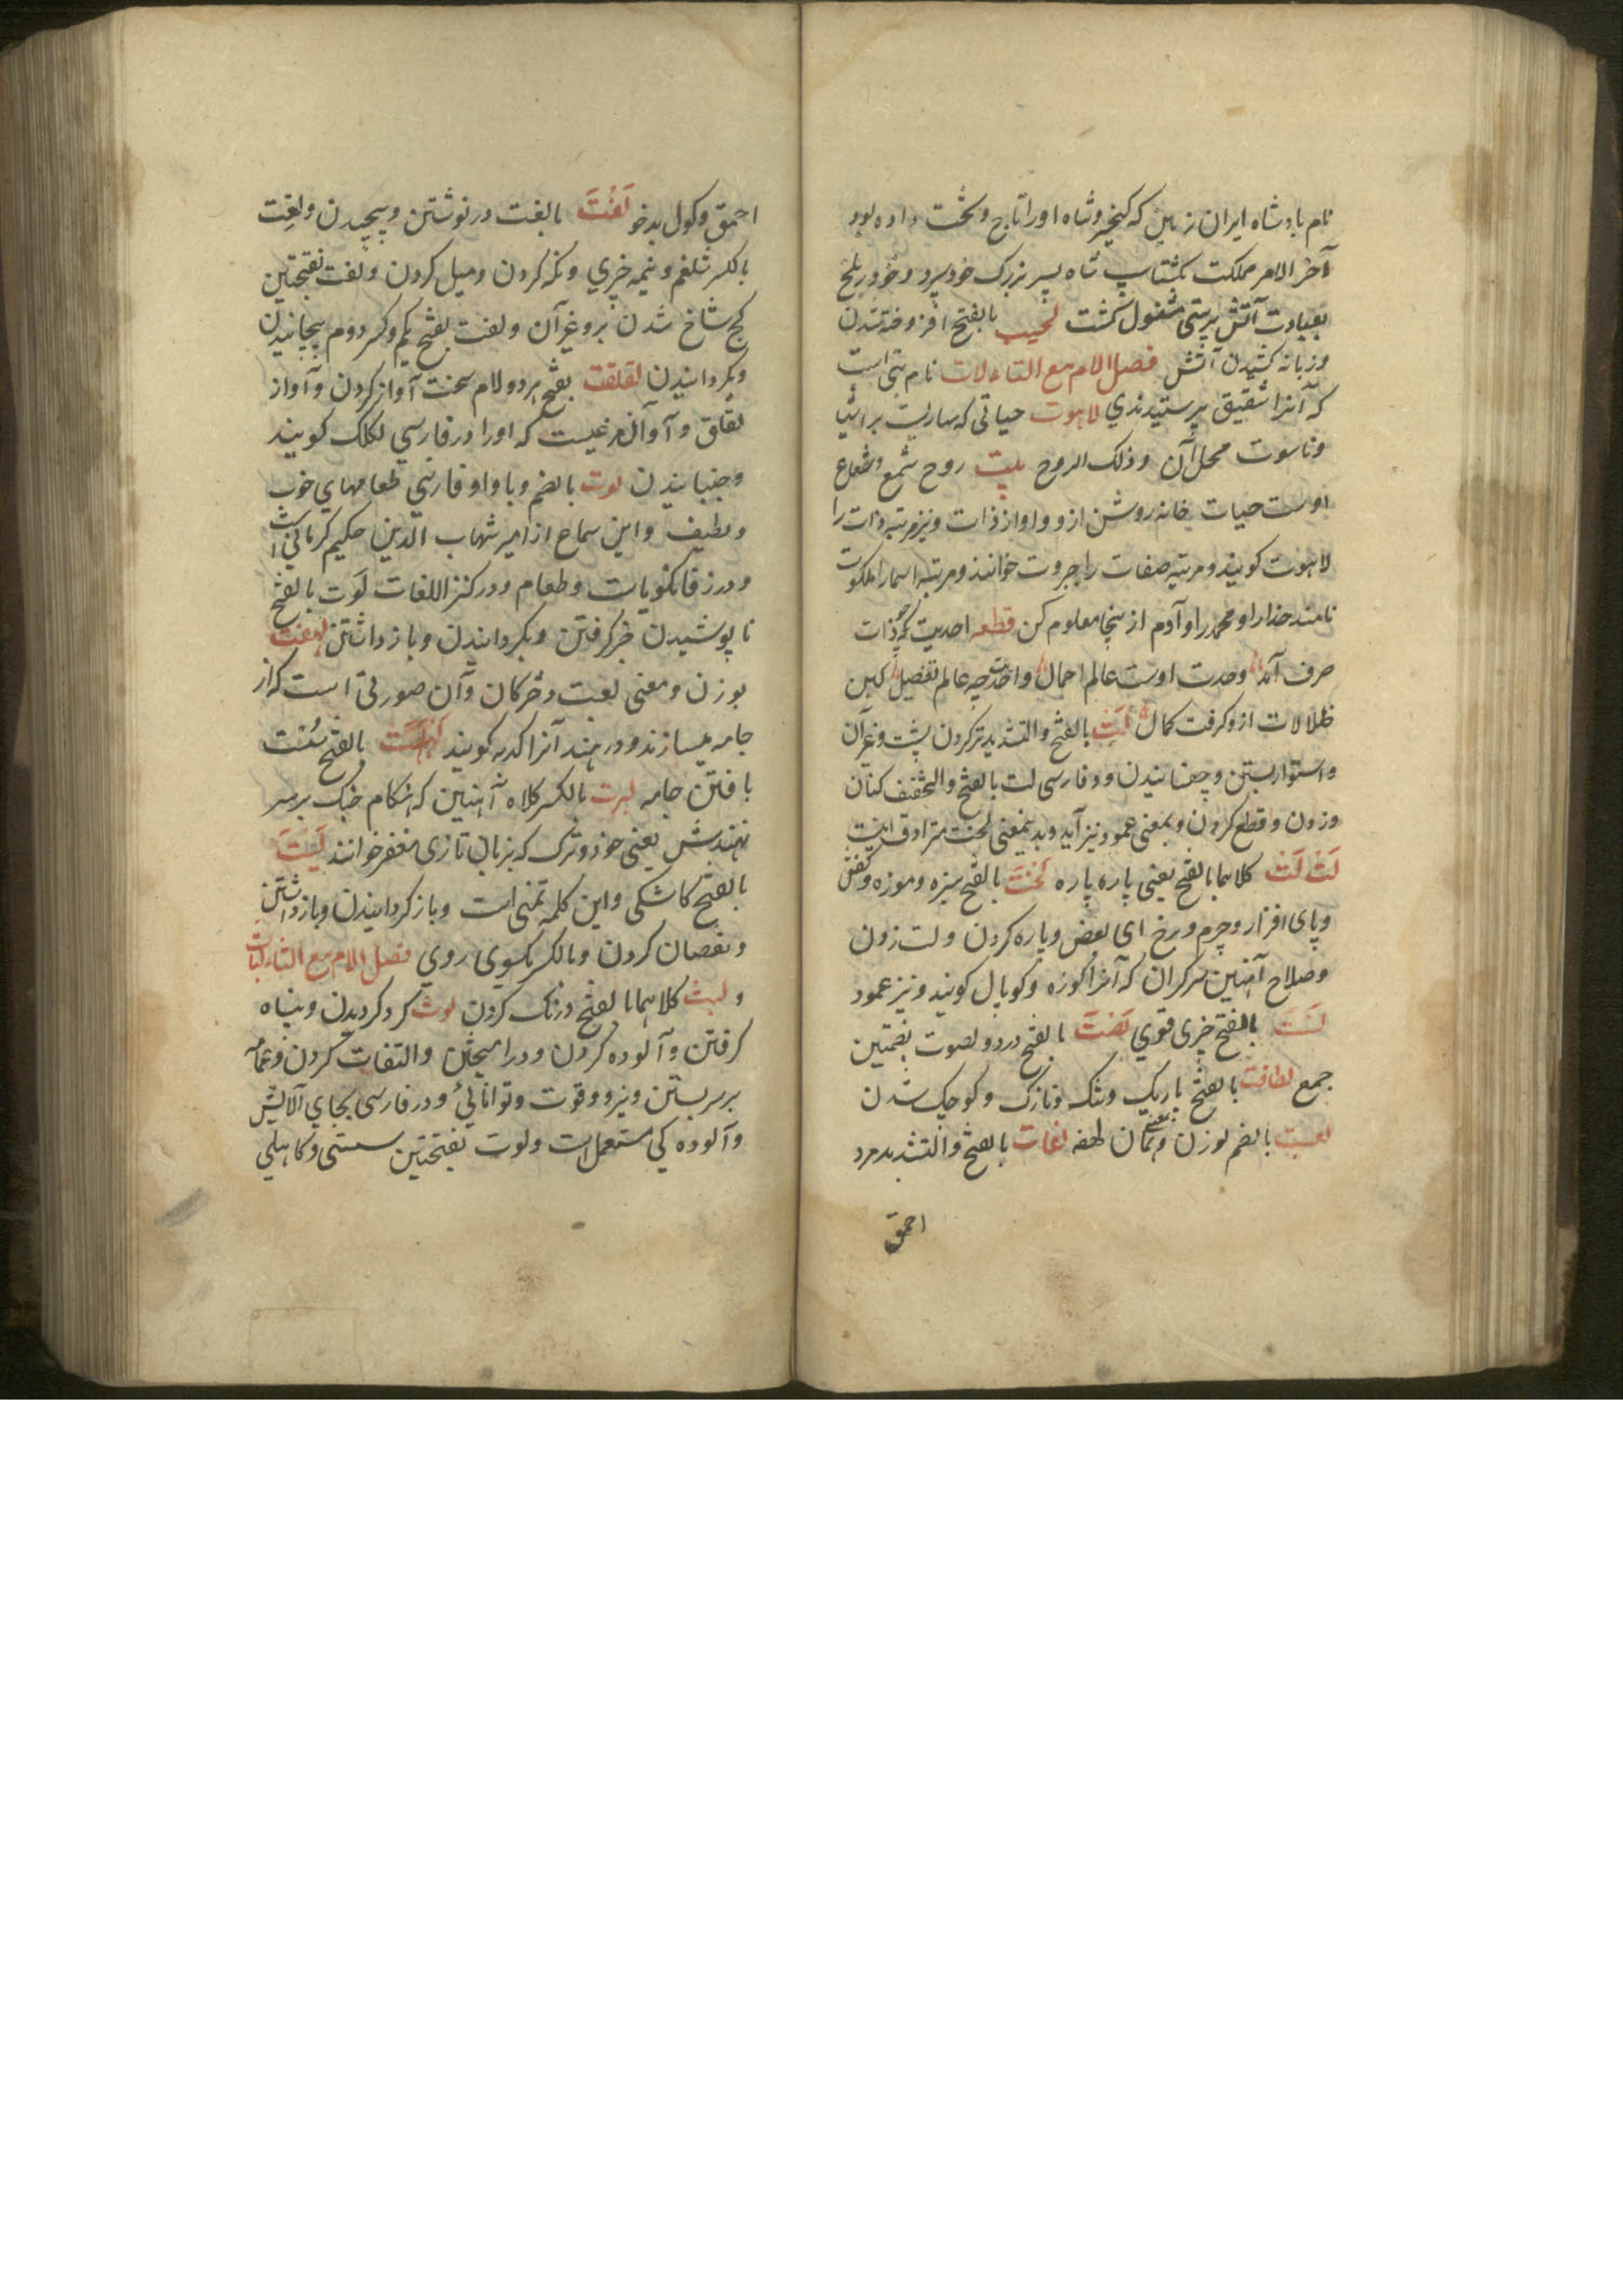 نام بادشاه ایران زمین که کیخسرو شاه اورا تاج و تخت داده بود
آخر الامر مملکت بکشتاسپ شاه پسر بزرک خود سپرد و خود در بلخ
بعبادت آتش پرستی مشغول کشت لحیب بالفتح افروخته شدن
و زبانه کشیدن آتش فصل الام مع التاء لات نام بتی است
که آنرا شقیق پرستیدندی لاهوت حیاتی که ساریست بر اشیا
و ناسوت محل آن و ذلک الروح بیت روح شمع و شعاع
اوست حیات خانه روشن ازو و او از ذات و نیز مرتبه ذات را
لاهوت کویند و مرتبه صفات را جبروت خوانند و مرتبه اسما را ملکوت
نامند خدا را و محمد را و آدم از ینجا معلوم کن قطعه احدیت که ذات
صرف آمد وحدت اوست عالم اجمال واحدیت چه عالم تفصیل کین
ظلالات ازو کرفت کمال لَت بالفتح و التشدید تر کردن پشت و غیر آن
و استوار بستن و چفسانیدن و در فارسی لت بالفتح و التخفیف کتان
و زدن و قطع کردن و بمعنی عمود نیز آید و بدینمعنی لخت مترادف اینست
لَت لَت کلاهما بالفتح یعنی پاره پاره لَخت بالفتح سیزه و موزه و کفش
و پای افزار و چرم و برخ ای بعض و پاره کردن و لت زدن
و صلاح آهنین سرکران که آنرا کوزه و کوپال کویند و نیز عمود
لَست بالفتح چیزی قوی لَصت بالفتح درد و لصوت بضمتین
جمع لطافت بالفتح باریک و تنک و نازک و کوچک شدن
لعبت بالضم بوزن و معنی همان لهفه لغات بالفتح و التشدید مرد
احمق
احمق و کول بدخو لَفت بالفت در نوشتن و پیچیدن و لفت
بالکسر شلغم و نیمه چیزی و نکه کردن و میل کردن و لفت بفتحتین
کج شاخ شدن بز و غیر آن و لفت بفتح یکم و کسر دوم پیچانیدن
و بکردانیدن لقلقت بفتح هر دو لام سخت آواز کردن و آواز
لقاق و آواز مرغیست که اورا در فارسی لکلک کویند
و جنبانیدن لوت بالضم و با واو فارسی طعامهای خوب
و لطیف و این سماع از امیر شهاب الدین حکیم کرمانی است
و در زفانکویاست و طعام و در کنز اللغات لَوت بالفتح
نا پوشیدن خبر کرفتن و بکردانیدن و باز داشتن لهفت
بوزن و معنی لعبت دخترکان و آن صورتی است که از
جامه میسازند و در هند آنرا کدیه کویند بالفتح سست
بافتن جامه لبرت بالکسر کلاه آهنین که هنکام جنک بر سر
نهندش یعنی خود و ترک که بزبان تازی مغفر خوانند لَیتَ
بالفتح کاشکی و این کلمه تمنی است و باز کردانیدن و باز داشتن
و نقصان کردن و بالکسر یکسوی روی فصل الام مع الثاء لباث
و لبث کلاهما بالفتح درنک کردن لوث کرد کردیدن و پناه
کرفتن و آلوده کردن و در آمیختن و التفات کردن و عمامه
بر سر بستن و نیرو و قوت و توانائی و در فارسی بجای آلایش
و آلوده کی مستعمل است و لوث بفتحتین سستی و کاهلی